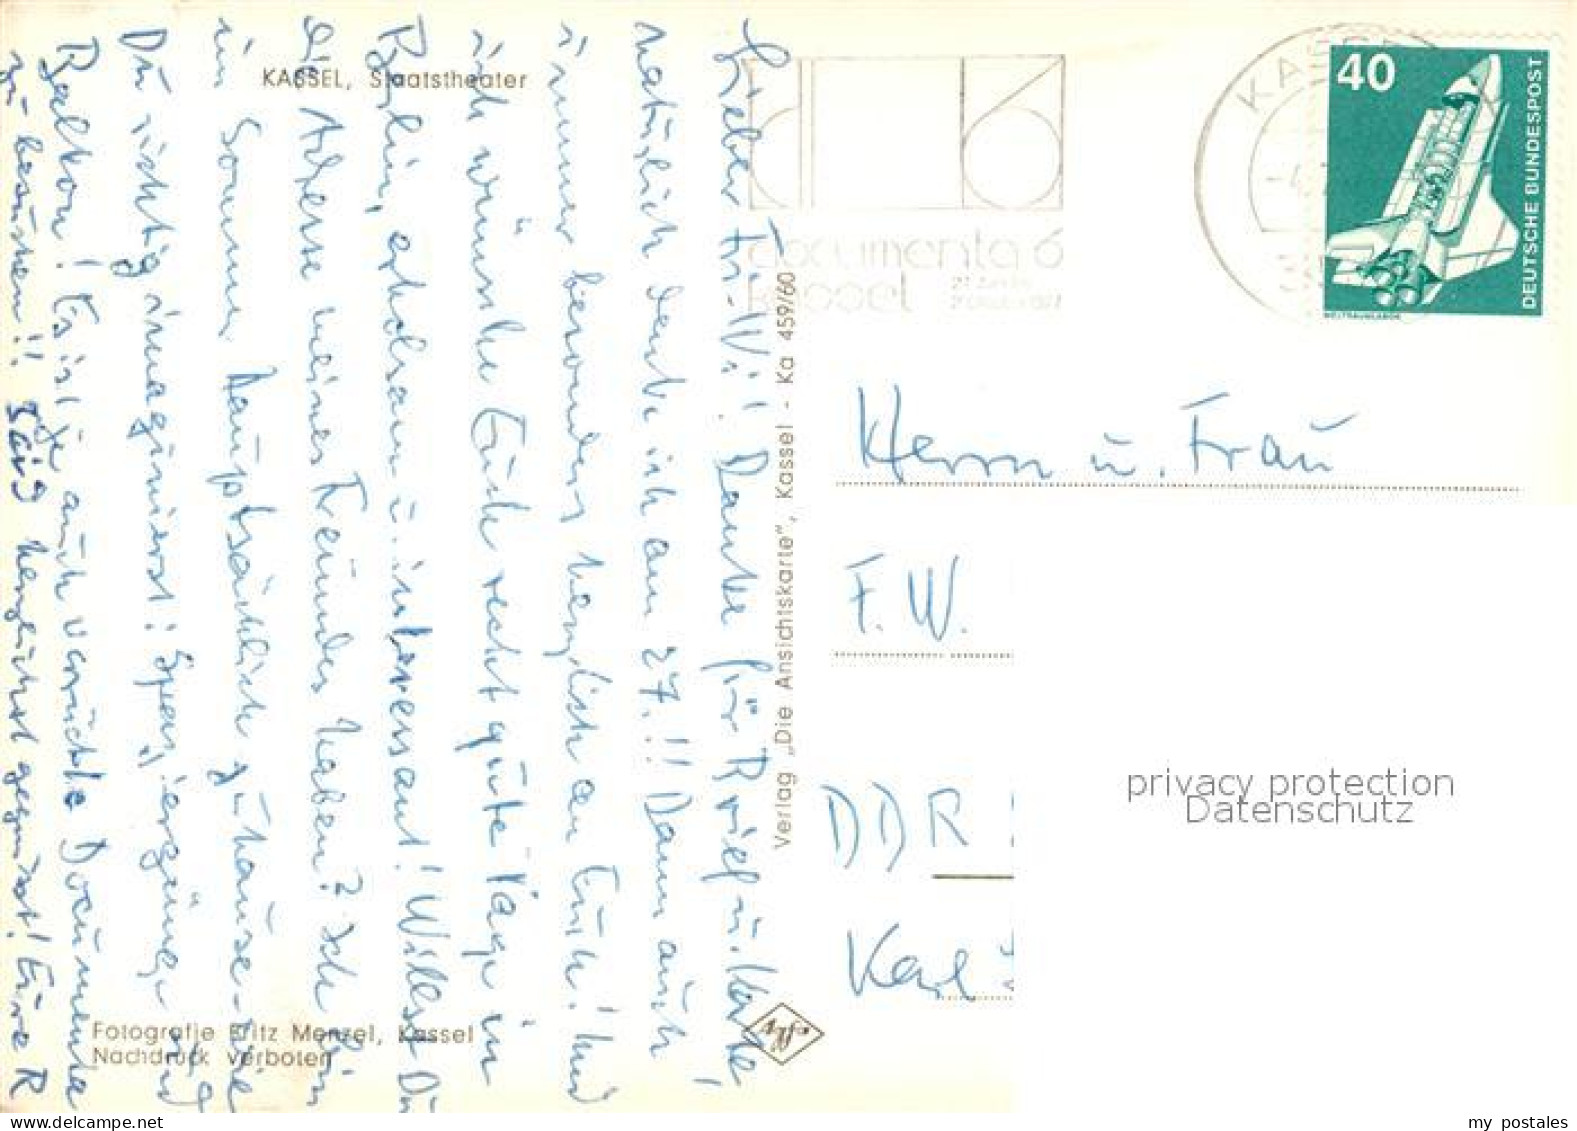 KASSEL, Staatstheater
Lieber Fri-Wi! Danke für Brief u. Karte,
natürlich denke ich am 27.!! Dann auch
immer besonders herzlich an Euch! Und
ich wünsche Euch recht gute Tage in
Berlin, erholsam u. interessant! Willst Du
die Adresse meines Freundes haben? Ich bin
im Sommer hauptsächlich zuhause - wie
Du richtig imaginierst:
Balkon! Es ist ja auch verrückte Documenta
zu besuchen!! Seid herzlichst gegrüsst! Eure R
Fotografie Fritz Menzel, Kassel
Nachdruck verboten
Verlag „Die Ansichtskarte", Kassel - Ka 459/60
documenta 6
kassel
KASSEL
40
DEUTSCHE BUNDESPOST
WELTRAUMLABOR
Herrn u. Frau
F. W.
DDR
Karl
privacy protection
Datenschutz
my postales